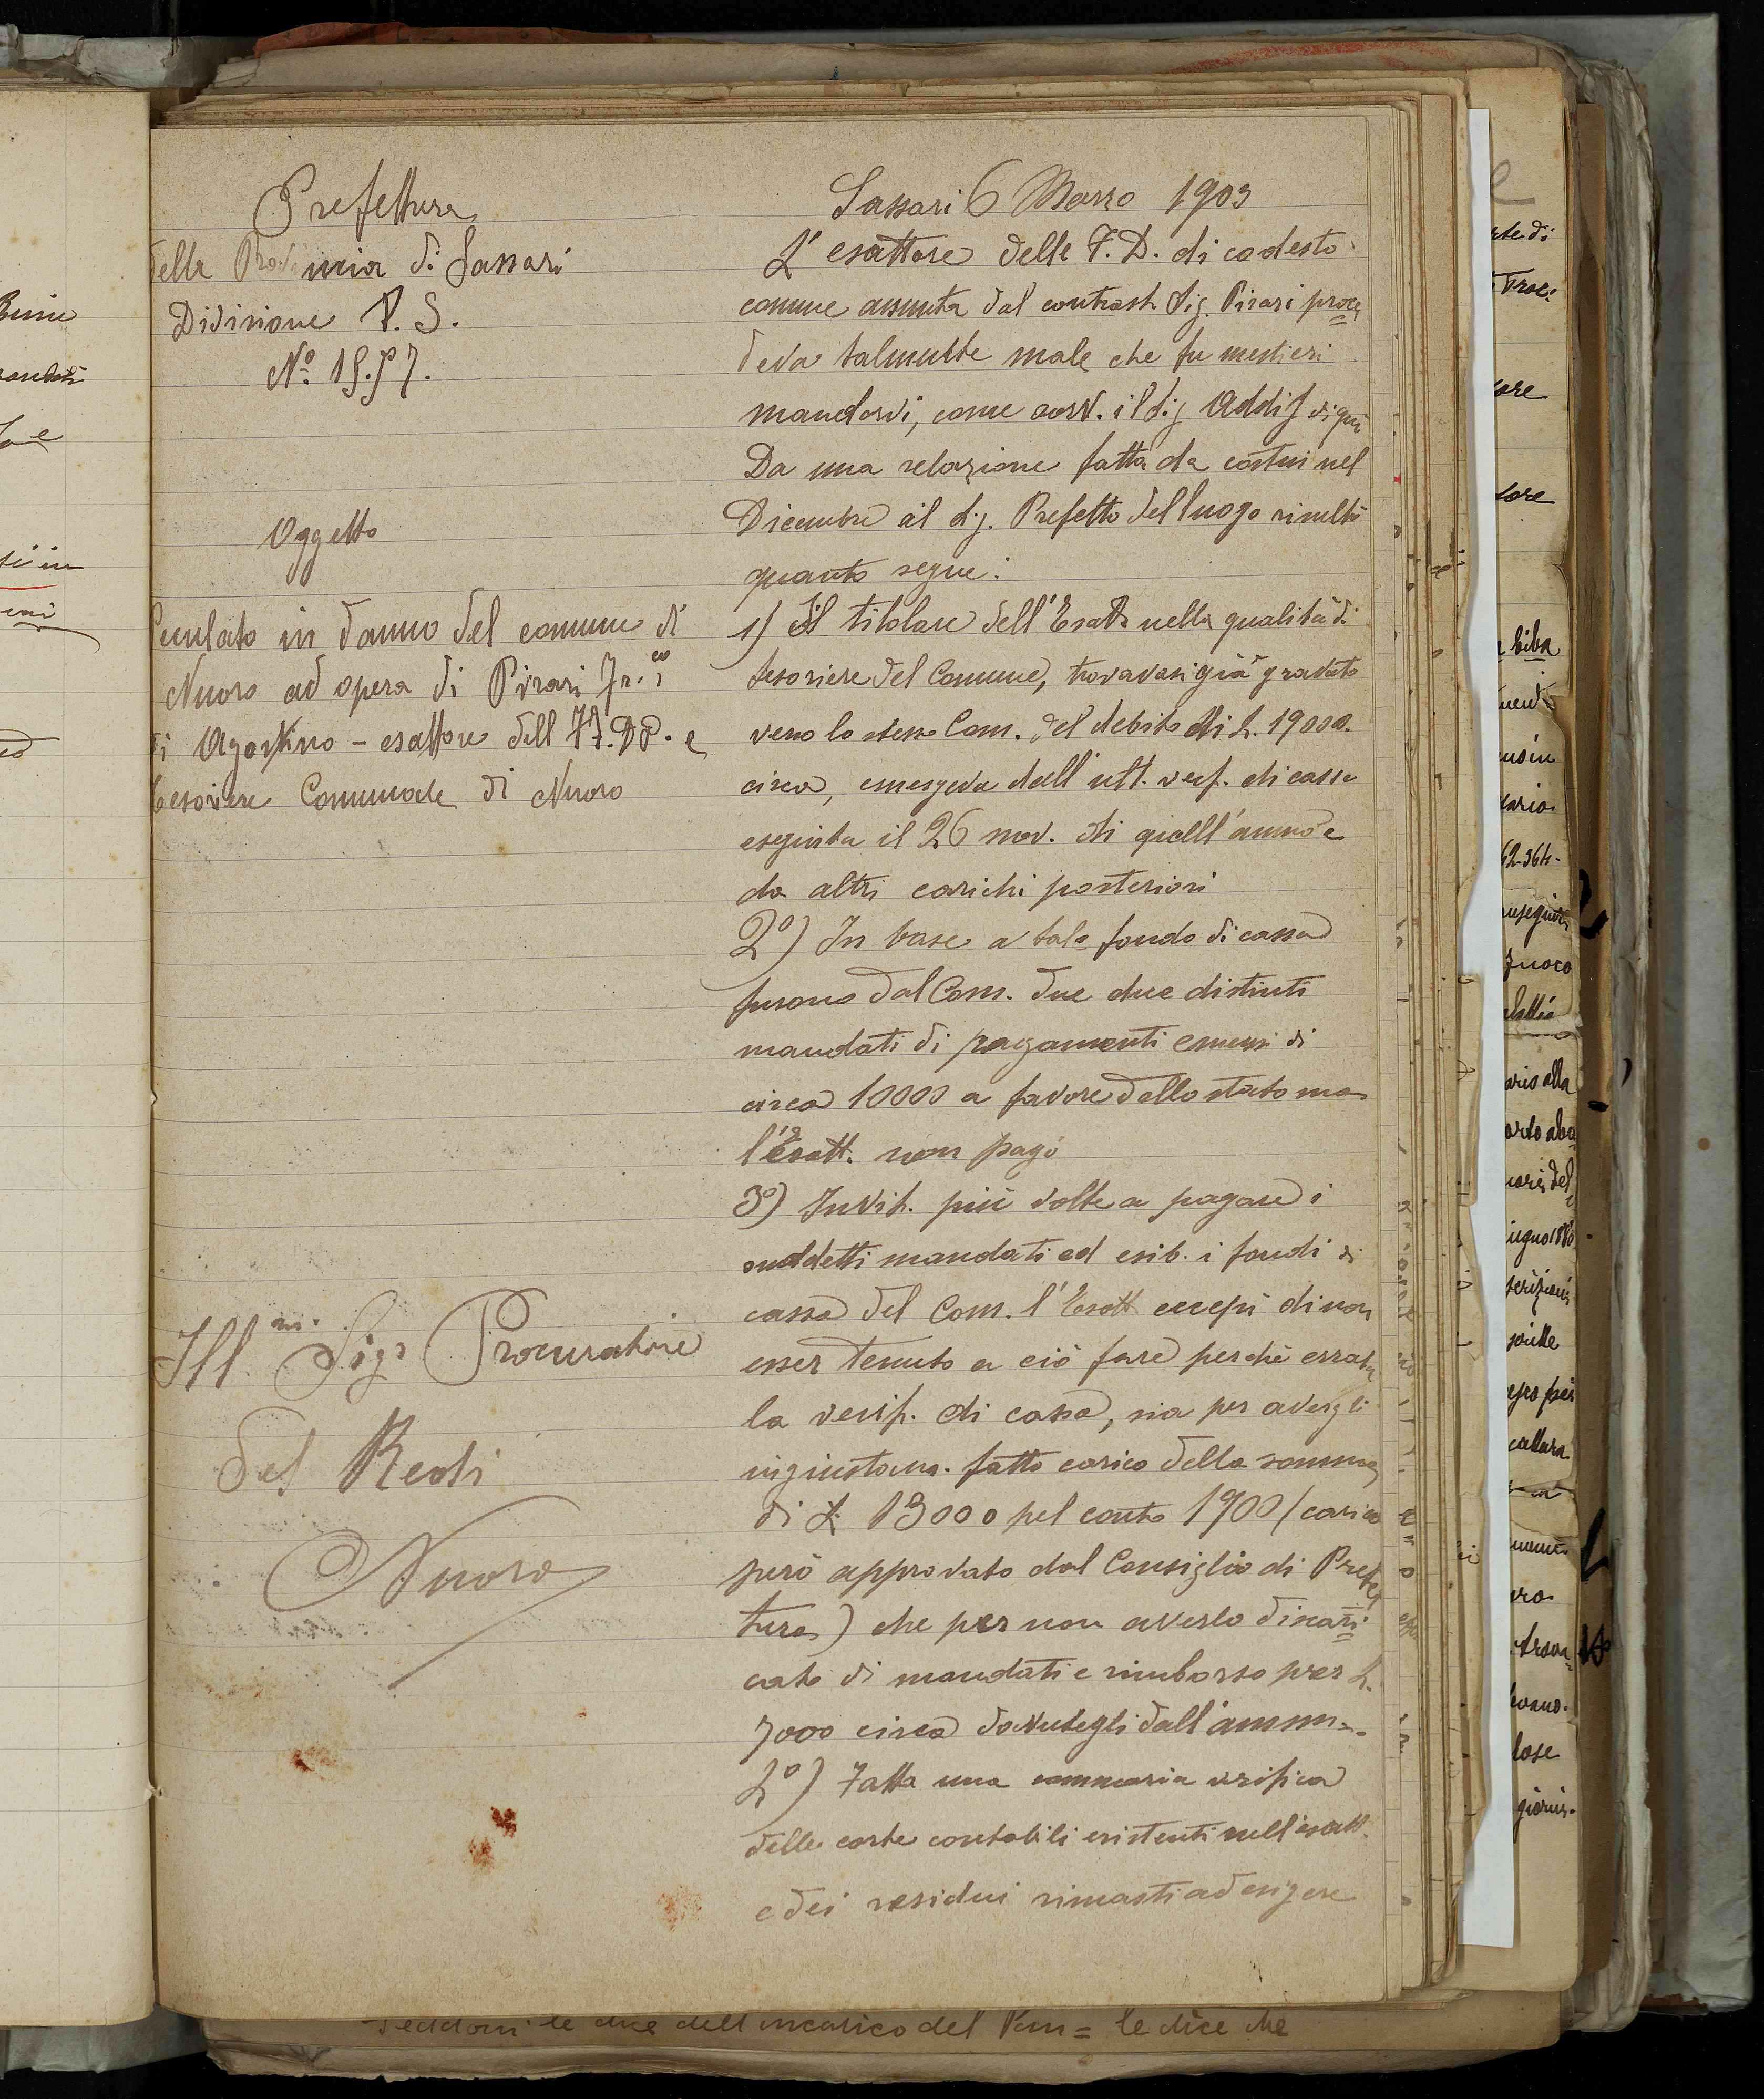 Prefettura
della Provincia di Sassari
Divisione P. S.
Nº
Oggetto
Peculato in danno del comune di
Nuoro ad opera di Pirari Fr.co
di Agostino - esattore dell FF. DD. e
tesoriere Communale di Nuoro
Ill. mo. Sigr Procuratore
del Re di
Nuoro
Sassari 6 Marzo 1903
L' esattore delle F. D. di codesto
comune assunta dal contrash. Sig. Pirari proce
deva talmente male che fu mestieri
mandarvi, come sorv. il Sig Addis di qui
Da una relazione fatta da costui nel
Dicembre al Sig. Prefetto del luogo risultò
quanto segue:
1) Il titolare dell'Esatt. nella qualità di
tesoriere del Comune, trovavasi già gravato
verso lo stesso Com. del debito di L. 19000.
circa, emergeva dall' ult. verif. di cassa
eseguita il 26 nov. di quell'anno e
da altri carichi posteriori
2º) In base a tale fondo di cassa
furono dal Com. due due distinti
mandati di pagamenti emessi di
circa 10000 a favore dello stato ma
l'Esatt. non pagò
3º) Invit. più volte a pagare i
suddetti mandati ed esib. i fondi di
cassa del Com. l'Esatt eccepì di non
esser tenuto a ciò fare perchè errata
la verif. di cassa, sia per avergli
ingiustam. fatto carico della somma
di L 13000 pel conto 1900 (carico
però approvato dal Consiglio di Prefet
tura) che per non averlo discari
cato di mandati e rimborso per L.
7000 circa dovutegli dall'amm.
Fatta una sommaria verifica
delle carte contabili esistenti nell'esatt.
e dei residui rimasti ad esigere
le due dell incarico del = le dice che